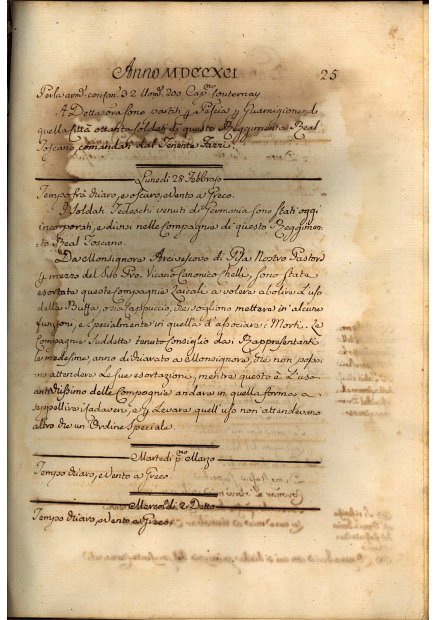 Anno MDCCXCI 25
Perla arm: con can: 32 Uom: 200 Cap:
A Detta ora sono partiti p Pescia p Guarnigione di
quella Città ottanta soldati di questo Reggimento Real
Toscano, comandati dal Tenente Fazzi.
Lunedì 28 Febbraio
Tempo frà chiaro, e oscuro, e Vento a Greco.
I Soldati Tedeschi venuti di Germania sono stati oggi
incorporati, e divisi nelle Compagnie di questo Reggimen-
to Real Toscano.
Da Monsignore Arcivescovo di Pisa Nostro Pastore
p mezzo del Suo Pro. Vicario Canonico Chelli, sono state
esortate queste Compagnie Laicali a volere abolire l'uso
della Buffa, o sia cappuccio, che sogliono mettere in alcune
funzioni, e specialmente in quella d'associare i Morti. Le
Compagnie suddette tenuto Consiglio dai Rappresentanti
le medesime, anno dichiarato a Monsignore, che non pos-
sono attendere le sue esortazioni, mentre questo è l'uso
antichissimo delle Compagnie andare in quella forma a
seppellire Cadaveri, e p levare quell'uso non attendevano
altro che un Ordine speciale.
Martedì p.mo Marzo
Tempo chiaro, e Vento a Greco.
Mercoldì 2. Detto
Tempo chiaro, e Vento a Greco.